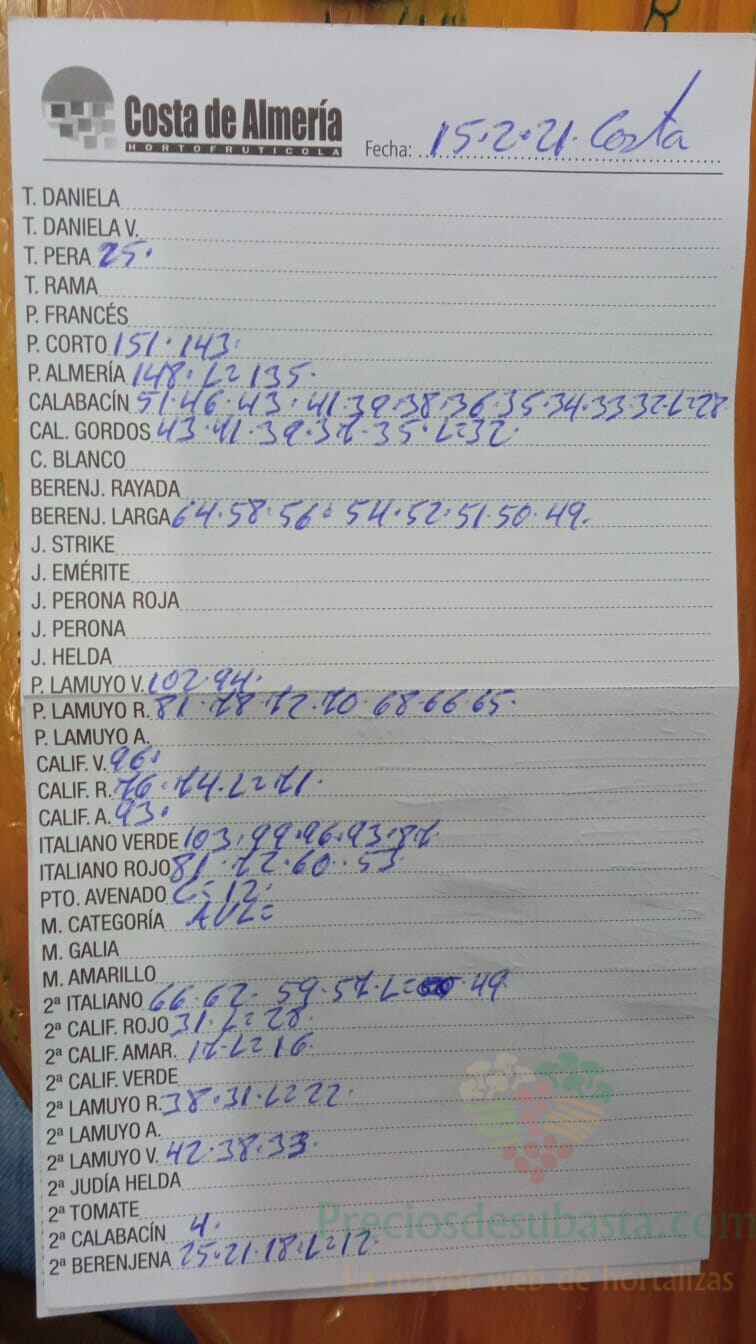 Costa de Almería
HORTOFRUTICOLA
Fecha: 15.2.21. Costa
T. DANIELA
T. DANIELA V.
T. PERA 25.
T. RAMA
P. FRANCÉS
P. CORTO 151. 143.
P. ALMERÍA 148. L=135.
CALABACÍN 51.46.43.41.39.38.36.35.34.33.32.L=28
CAL. GORDOS 43.41.39.37.35.L=32.
C. BLANCO
BERENJ. RAYADA
BERENJ. LARGA 64.58.56.54.52.51.50.49.
J. STRIKE
J. EMÉRITE
J. PERONA ROJA
J. PERONA
J. HELDA
P. LAMUYO V. 102.94.
P. LAMUYO R. 81.78.72.70.68.66.65.
P. LAMUYO A.
CALIF. V. 96.
CALIF. R. 76.74.L=71.
CALIF. A. 93.
ITALIANO VERDE 103.99.96.93.87
ITALIANO ROJO 81.72.60.53
PTO. AVENADO C=12.
M. CATEGORÍA
M. GALIA
M. AMARILLO
2ª ITALIANO 66.62.59.57.L=49.
2ª CALIF. ROJO 31.L=28.
2ª CALIF. AMAR. 17.L=16.
2ª CALIF. VERDE
2ª LAMUYO R. 38.31.L=22.
2ª LAMUYO A.
2ª LAMUYO V. 42.38.33.
2ª JUDÍA HELDA
2ª TOMATE
2ª CALABACÍN 4.
2ª BERENJENA 25.21.18.L=12.
Preciosdesubasta.com
La mayor web de hortalizas